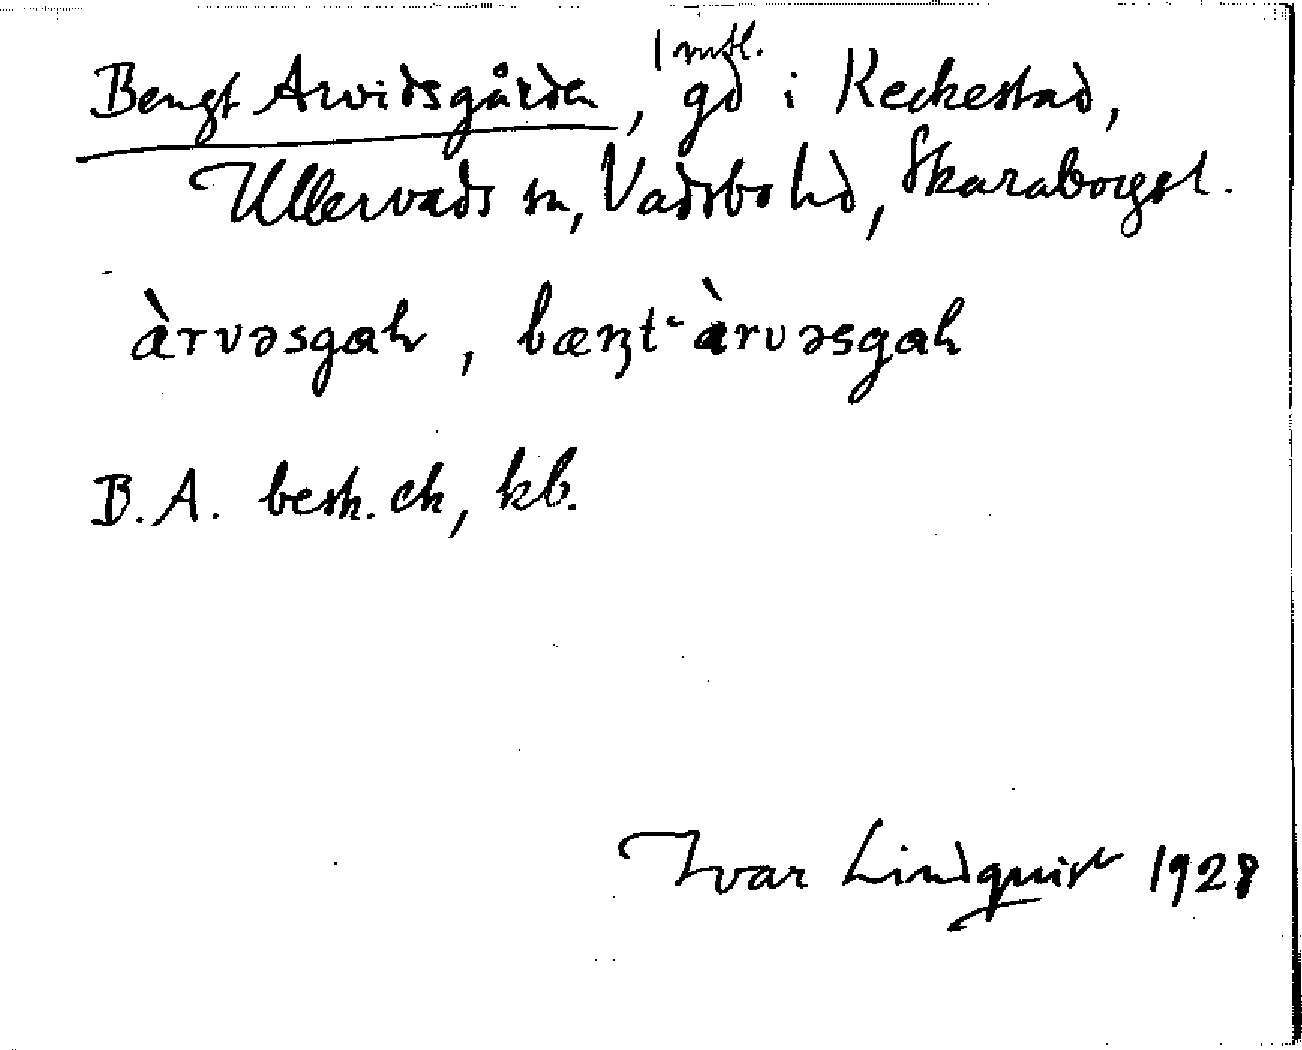 Bengt Arvidsgården, 1 mtl. gd i Keckestad,
Ullervads sn, Vadsbo hd, Skaraborgs l.
àrvəsgaɦ, bæŋt-àrvəsgaɦ
B.A. besk. ek, kb.
Ivar Lindquist 1928